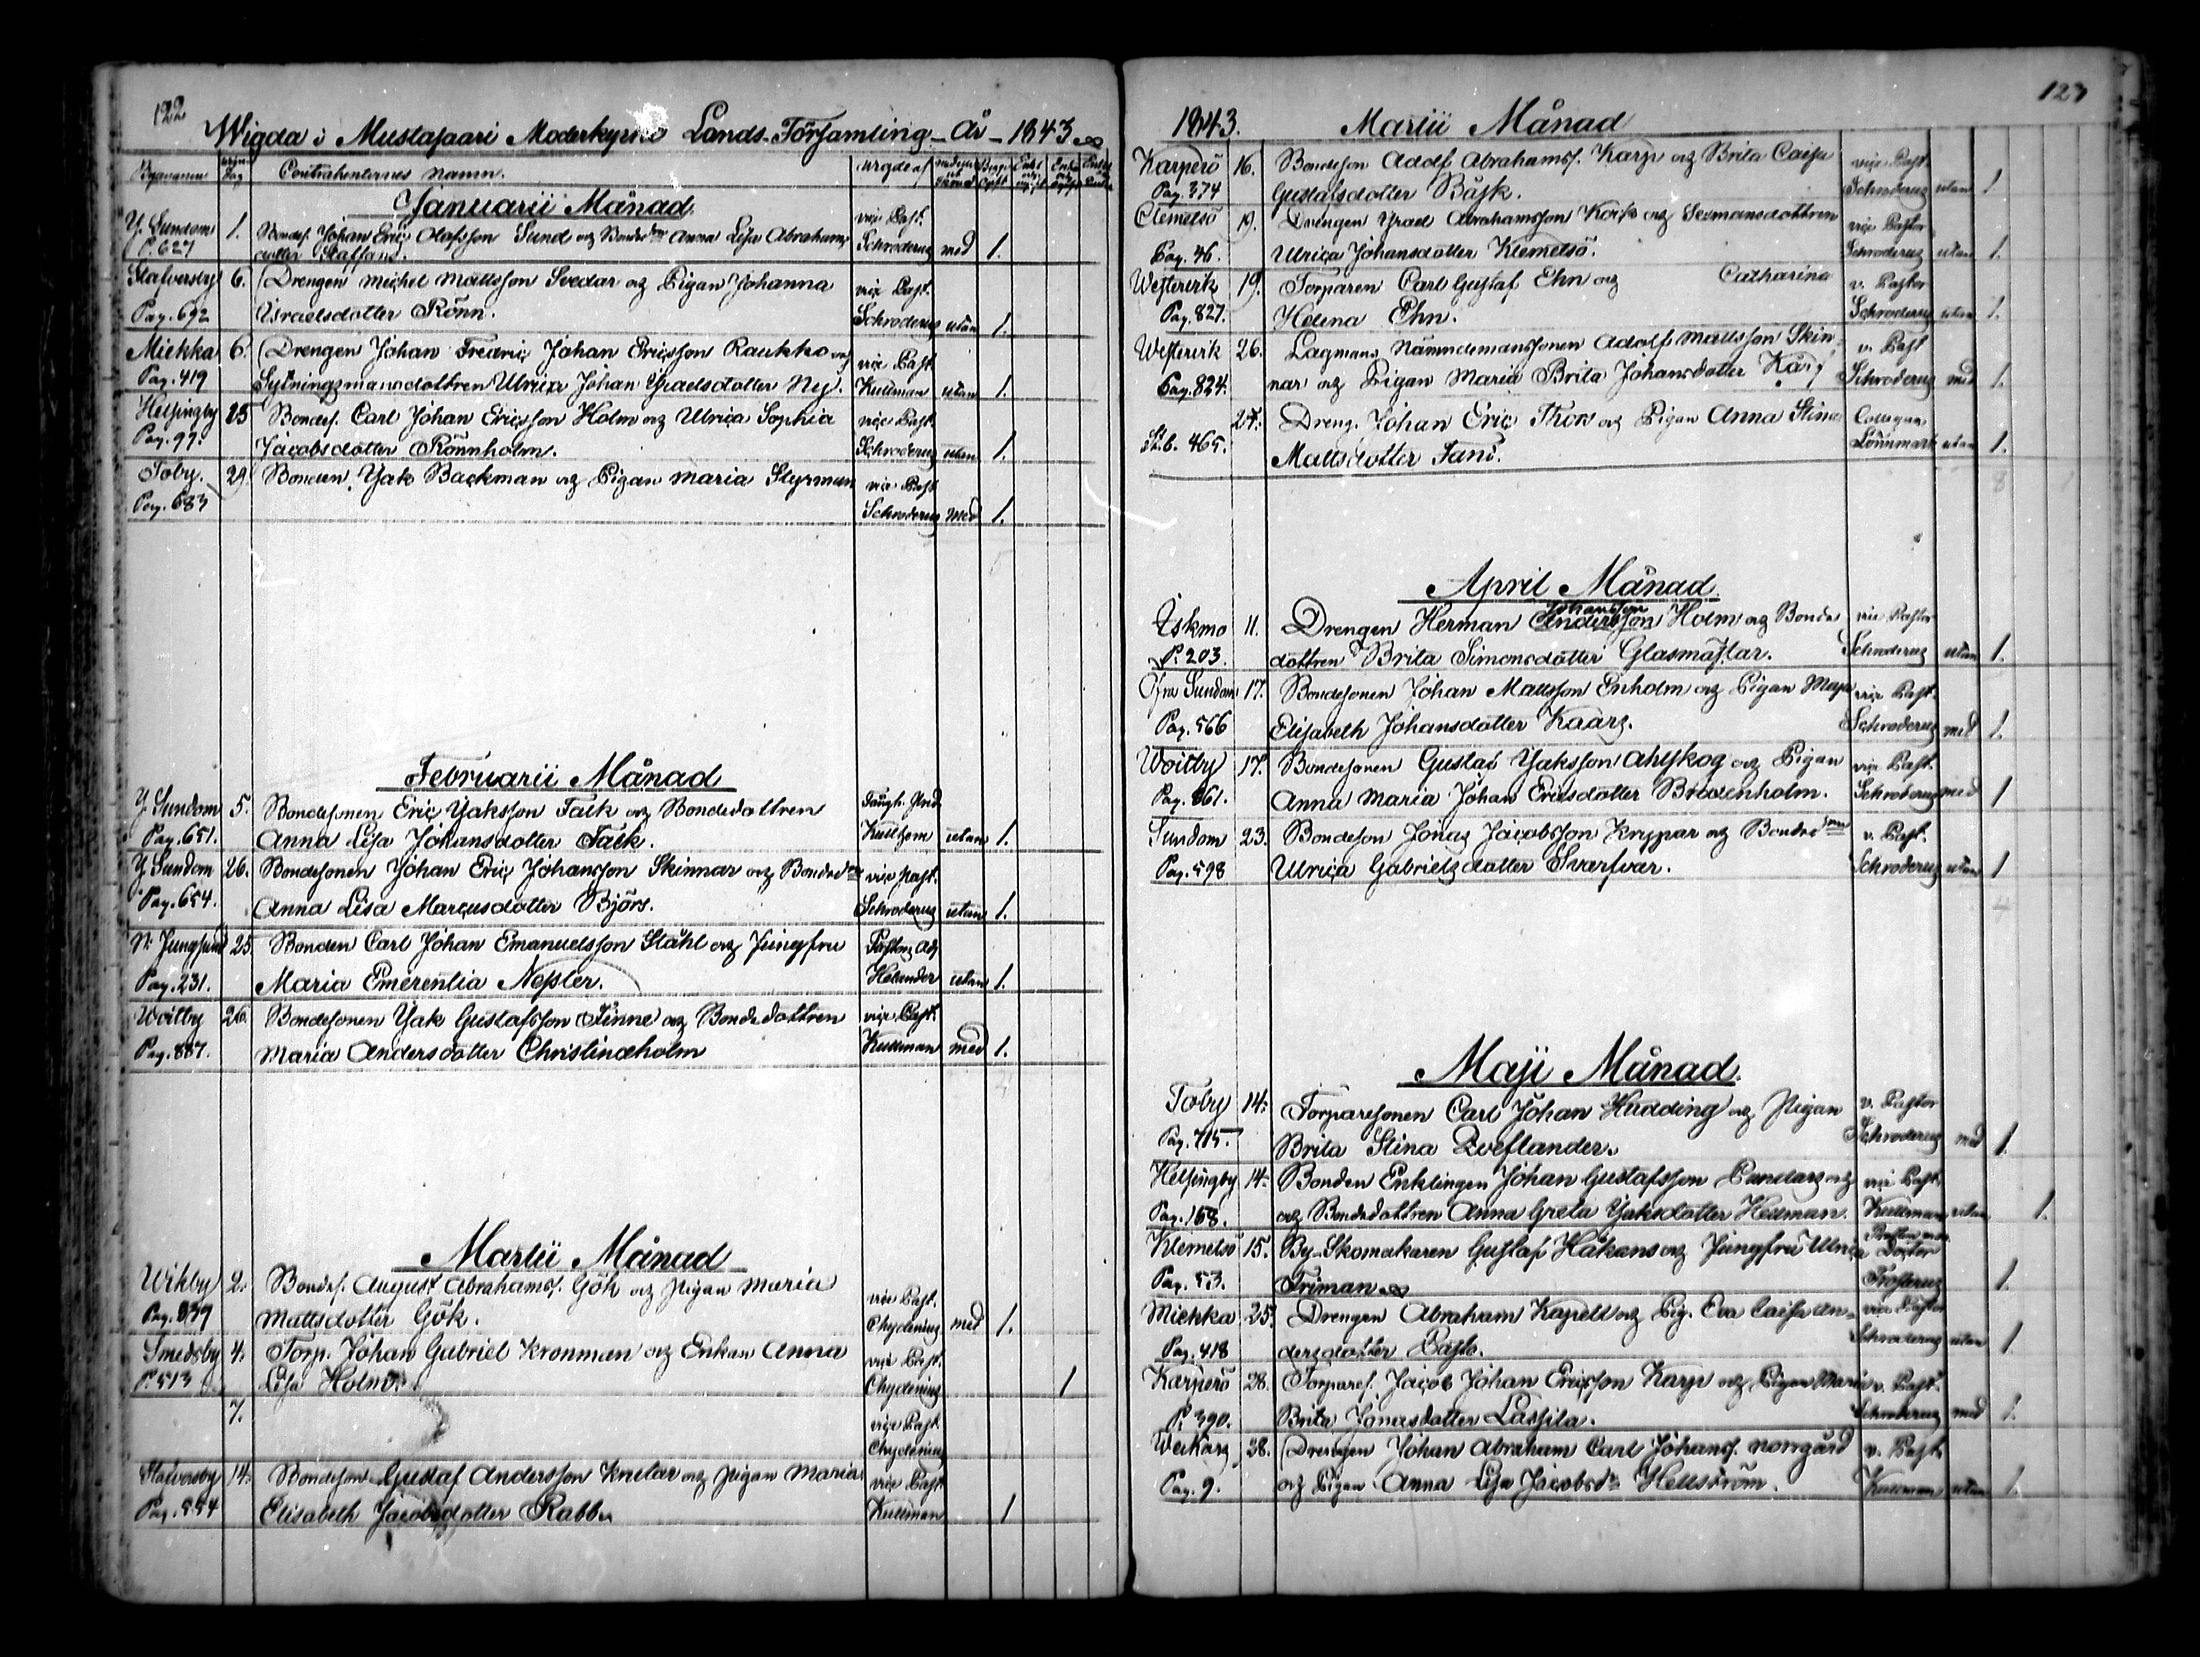 122
Wigda i Mustasaari Moderkyrko Lands-Församling År 1843
Byanamn Contrahenternes namn. wigde af
Januarii Månad
Y. Sundom 1. Bondes. Johan Eric Olafsson Sund och Bonded:n Anna Lisa Abrahams vice Past.
P. 627 dotter Staffans. Schroderus med 1.
Stafversby 6. Drengen Michel Mattsson Svedar och Pigan Johanna vice Past.
Pag. 692 Israelsdotter Rönn. Schroderus utan 1.
Miekka 6. Drengen Johan Fredric Johan Ericsson Raukko och vice Past.
Pag. 419 Sytningsmansdottren Ulrica Johan Israelsdotter Ny. Kullman utan 1.
Helsingby 25 Bondes. Carl Johan Ericsson Holm och Ulrica Sophia vice Past.
Pag. 99. Jacobsdotter Rönnholm. Schroderus utan 1.
Toby. 29. Bonden Isak Backman och Pigan Maria Styrman vice Past
Pag. 683 Schroderus med 1.
Februarii Månad
Y Sundom 5. Bondesonen Eric Isaksson Falk och Bondedottren
Pag. 651. Anna Lisa Johansdotter Falk. utan 1.
Y Sundom 26. Bondesonen Johan Eric Johansson Skinnar och Bonded:n vice past.
Pag. 654. Anna Lisa Marcusdotter Björs. Schroderus utan 1.
N. Jungsund 25. Bonden Carl Johan Emanuelsson Ståhl och Jungfru Adj
Pag. 231. Maria Emerentia Nessler. Helander utan 1.
Woitby 26. Bondesonen Isak Gustafsson Finne och Bondedottren vice Past.
Pag. 887. Maria Andersdotter Christineholm Kullman med 1.
Martii Månad
Wikby 2. Bondes. August Abrahams. Gök och Pigan Maria vice Past.
Pag. 839 Mattsdotter Gök. Chydenius med 1.
Smedsby 4. Torp. Johan Gabriel Kronman och Enkan Anna vice Past.
P. 513 Lisa Holm. Chydenius 1
7. vice Past
Chydenius
Stafversby 14. Bondeson Gustaf Andersson Knelar och Pigan Maria vice Past
Pag. 554 Elisabeth Jacobsdotter Rabb Kullman 1
123
1843. Martii Månad
Karperö 16. Bondeson Adolf Abrahamss. Karp och Brita Caisa vice Past.
Pag. 374 Gustafsdotter Båsk. Schroderus utan 1.
Clemetsö 19. Drengen Israel Abrahamsson Kock och vice Pastor
Pag. 46. Ulrica Johansdotter Klemetsö. Schroderus utan 1.
Westervik 19. Torparen Carl Gustaf Ehn och Catharina v. Pastor
Pag. 827. Helena Ehn. Schroderus utan 1.
Westervik 26. Lagmans Nämndemanssonen Adolf Mattsson Skin v. Past
Pag. 824. nar och Pigan Maria Brita Johansdotter Karf Schroderus med 1.
27. Dreng. Johan Eric Thors och Pigan Anna Stina Collegan
St.b. 465. Mattsdotter Fant. Lönnmark utan 1.
8
April Månad
Iskmo 11. Drengen Herman Andersson Johansson Holm och Bonde vice Pastor
P. 203. dottren Brita Simonsdotter Glasmästar. Schroderus utan 1.
Öfra Sundom 17. Bondesonen Johan Mattsson Enholm och Pigan Maja vice Past.
Pag. 566 Elisabeth Johansdotter Kaarg. Schroderus med 1.
Woitby 17. Bondesonen Gustaf Isaksson Ahlskog och Pigan vice Past.
Pag. 861. Anna Maria Johan Ericsdotter Bredenholm. Schroderus med 1
Sundom 23. Bondeson Jonas Jacobsson Knyppar och Bonded:n v. Past.
Pag. 598 Ulrica Gabrielsdotter Svarfvar. Schroderus utan 1
4
Maji Månad
Toby 14. Torparesonen Carl Johan Hudding och Pigan v. Pastor
Pag. 715. Brita Stina Qveflander. Schroderus med 1.
Helsingby 14. Bonden Enklingen Johan Gustafsson Pundars och vice Past.
Pag. 168. och Bondedottren Anna Greta Isaksdotter Hedman. Kullman utan 1.
Klemetsö 15. By-Skomakaren Gustaf Håkans och Jungfru Ulrica
Pag. 53. Friman 1.
Miekka 25. Drengen Abraham Kapell och Pig. Eva Caisa An- vice Pastor
Pag. 418 dersdotter Pasto. Schroderus utan 1
Karperö 28. Torpares. Jacob Johan Ericsson Karp och Pigan Maria v. Past.
P. 390. Brita Jonasdotter Lassila. Schroderus med 1.
Weikars 28. Drengen Johan Abraham Carl Johanss. Norrgård v. Past.
Pag. 9. och Pigan Anna Lisa Jacobsd:r Hellström. Kullman utan 1.